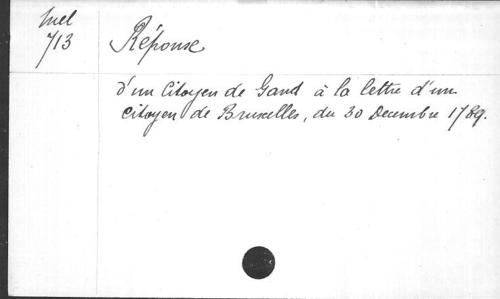 Mel
713
Réponse
d'un Citoyen de Gand à la lettre d'un
citoyen de Bruxelles, du 30 Decembre 1789.